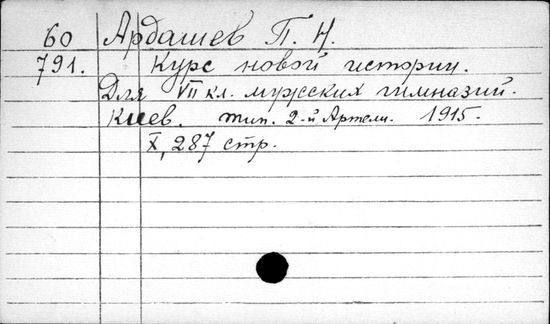 60 Ардашев П. Н.
791. Курс новой истории.
Для VII кл. мужских гимназий.
Киев. тип. 2-й Артели. 1915.
X, 287 стр.